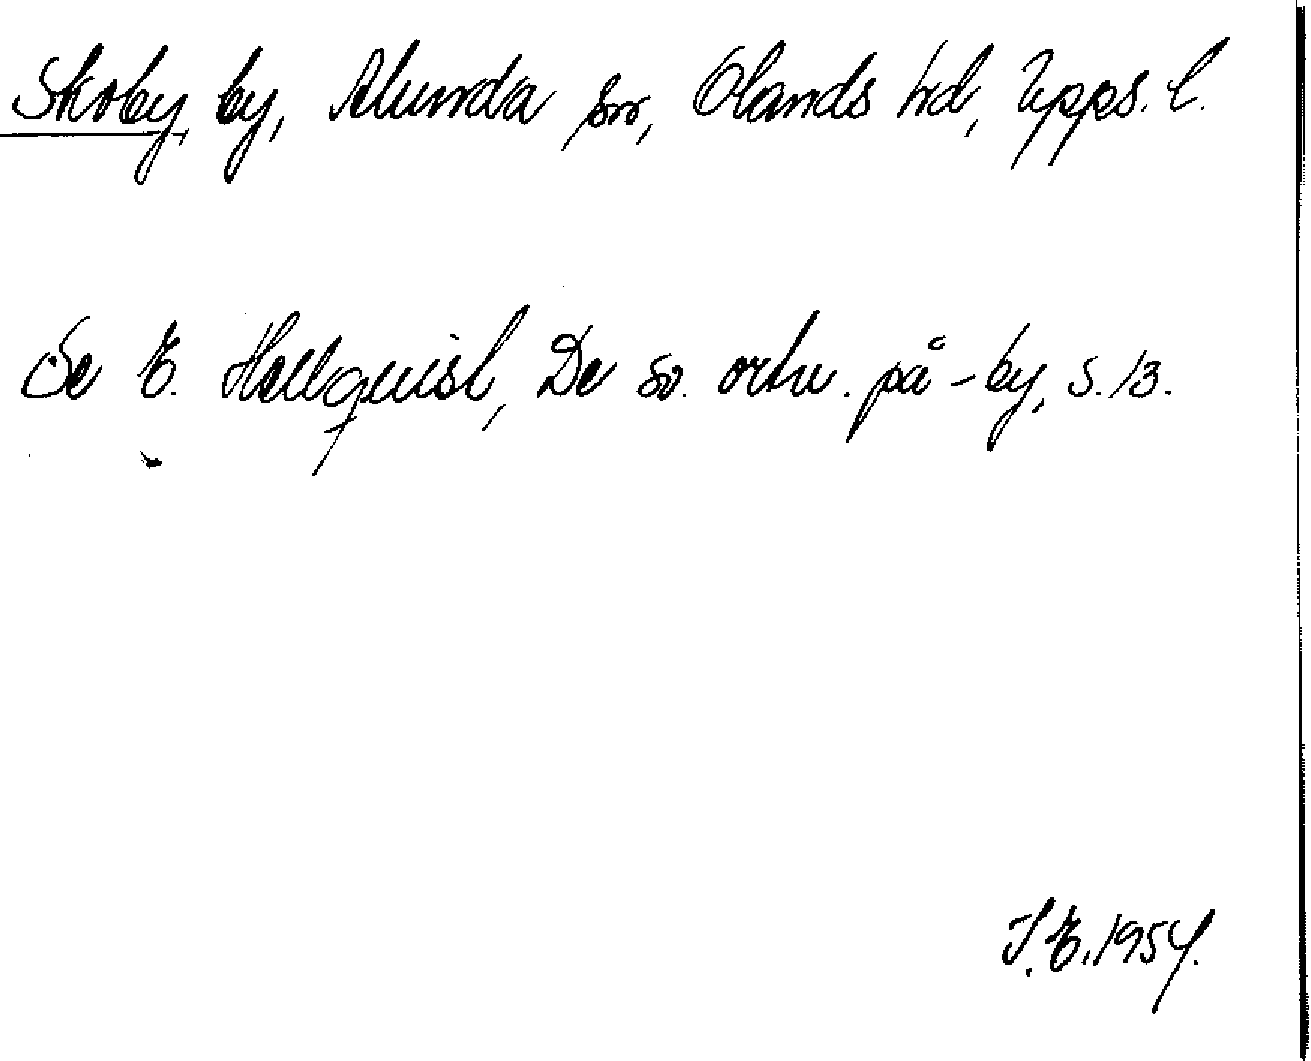 Skoby, by, Alunda sn, Olands hd, Upps. l.
Se E. Hellquist, De sv. ortn. på -by, s. 13.
S.E. 1954.